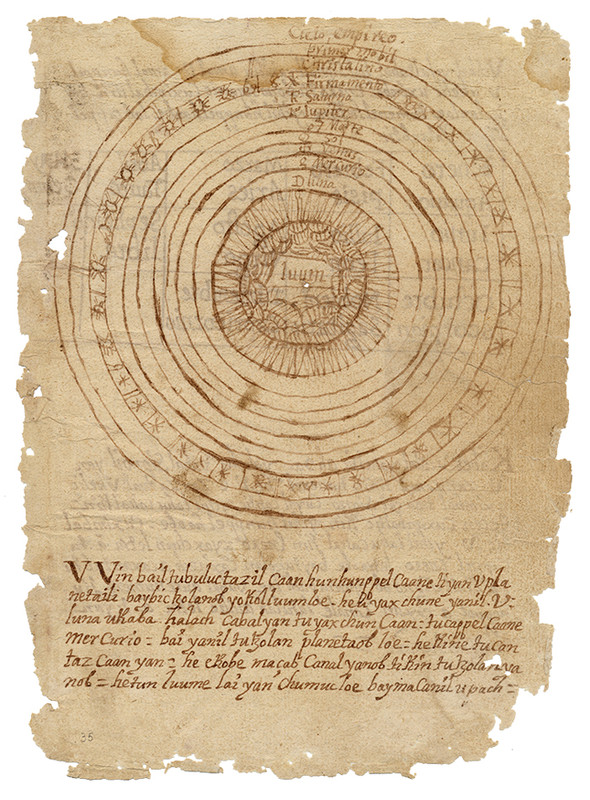 Cielo, empireo.
primer mobil
Christalino
Firmamento
Saturno
Jupiter
Marte
Sol
Venus
Mercurio
Dluna
luum
V Vin bail tubuluc tazil Caan hunhunppel Caane ti yan V pla
netaili - baybic kolanob yokol luum loe - he ti yax chune yanil . V-
luna ukaba - halach Cabal yan tu yax chun Caan = tu cappel Caane
mer Curio = bai yanil tu tzolan planetaob loe = he Kine tu can
taz Caan yan = he ekobe macab Canal yanob ti Kin tu tzolan ya
nob = he tun luume lai yan chumuc loe bay ma Canil u pach =
35